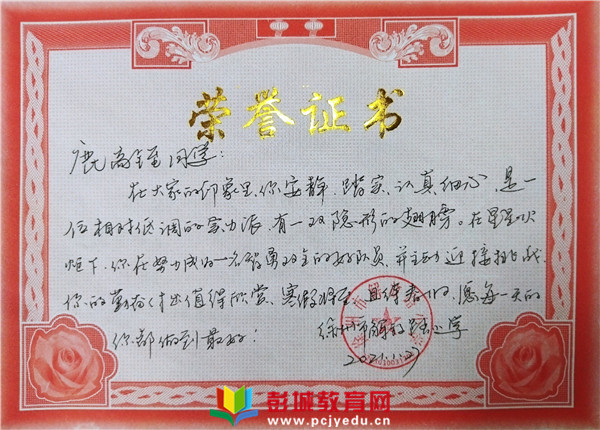 荣誉证书
鹿高铚同学：
在大家的印象里，你安静、踏实、认真、细心，是一
位相对低调的实力派，有一双隐形的翅膀。在星星火
炬下，你在努力成为一名智勇双全的好队员，并主动迎接挑战，
你的勤奋付出值得欣赏，寒假将至，且待春归，愿每一天的
你都做到最好！
徐州市解放路小学
2021.1.27
彭城教育网
www.pcjyedu.cn